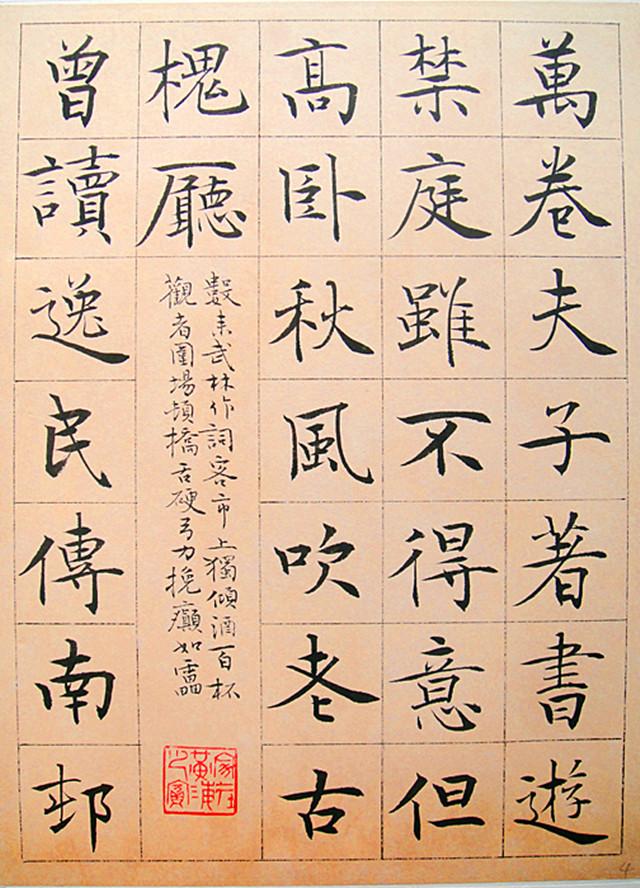 萬卷夫子著書遊
禁庭雖不得意但
高卧秋風吹老古
槐廳
數來武林作詞客市上獨傾酒百杯
觀者圍場頓橋舌硬弓力挽癲如靁
家在黃海之濱
曾讀逸民傳南邨
4